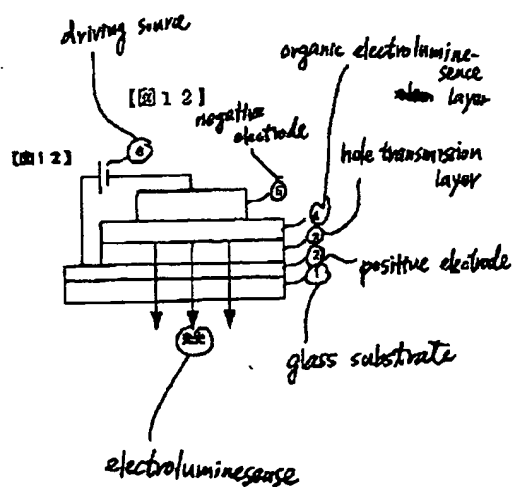 driving source
organic electrolumine-
sence
layer
【図12】
negative
electrode
【図12】
6
5
hole transmission
layer
4
3
2
1
positive electrode
glass substrate
electroluminesease